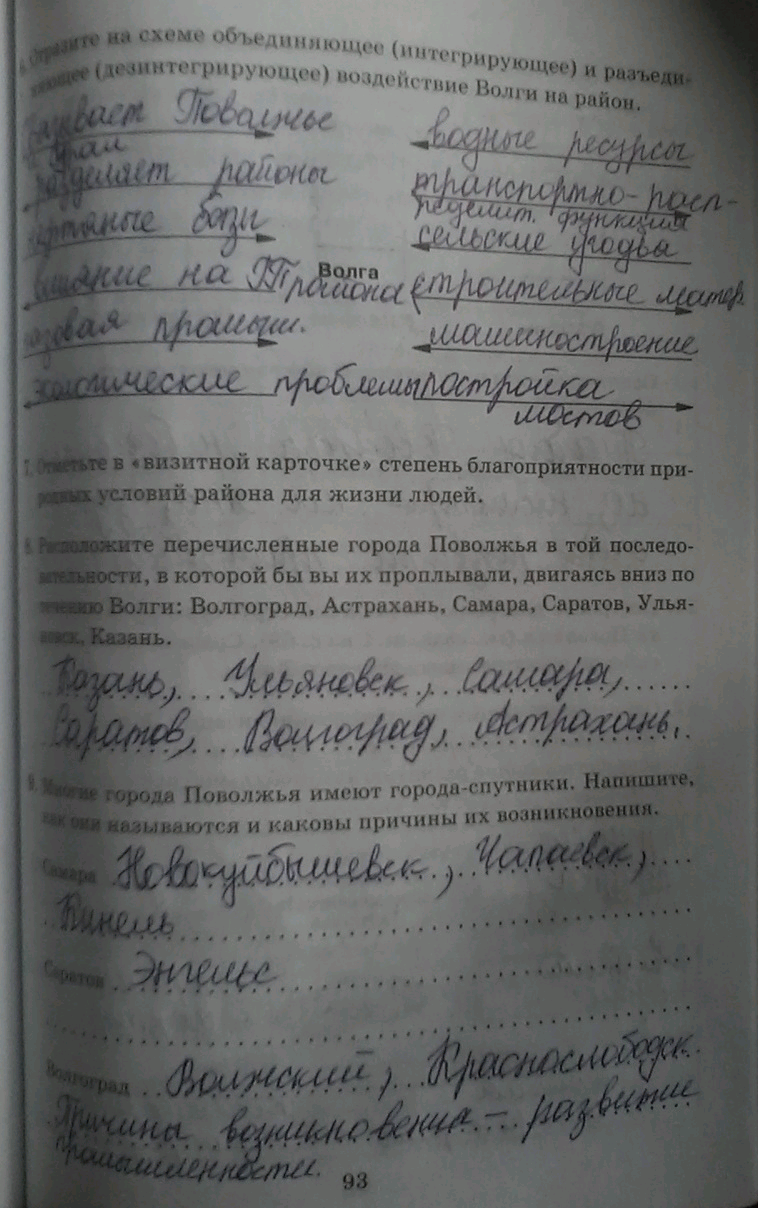 6. Отразите на схеме объединяющее (интегрирующее) и разъеди-
няющее (дезинтегрирующее) воздействие Волги на район.
Поволжье
водные ресурсы
край
разделяет районы
транспортно-расп-
ределит. функция
нефтяные базы
сельские угодья
влияние на ТП района
Волга
строительные матер.
газовая промышл.
машиностроение
экологические проблемы
постройка
мостов
7. Отметьте в «визитной карточке» степень благоприятности при-
родных условий района для жизни людей.
8. Расположите перечисленные города Поволжья в той последо-
вательности, в которой бы вы их проплывали, двигаясь вниз по
течению Волги: Волгоград, Астрахань, Самара, Саратов, Улья-
новск, Казань.
Казань, Ульяновск, Самара,
Саратов, Волгоград, Астрахань.
9. Многие города Поволжья имеют города-спутники. Напишите,
как они называются и каковы причины их возникновения.
Самара Новокуйбышевск, Чапаевск,
Кинель
Саратов Энгельс
Волгоград Волжский, Краснослободск
Причины возникновения – развитие
промышленности.
93